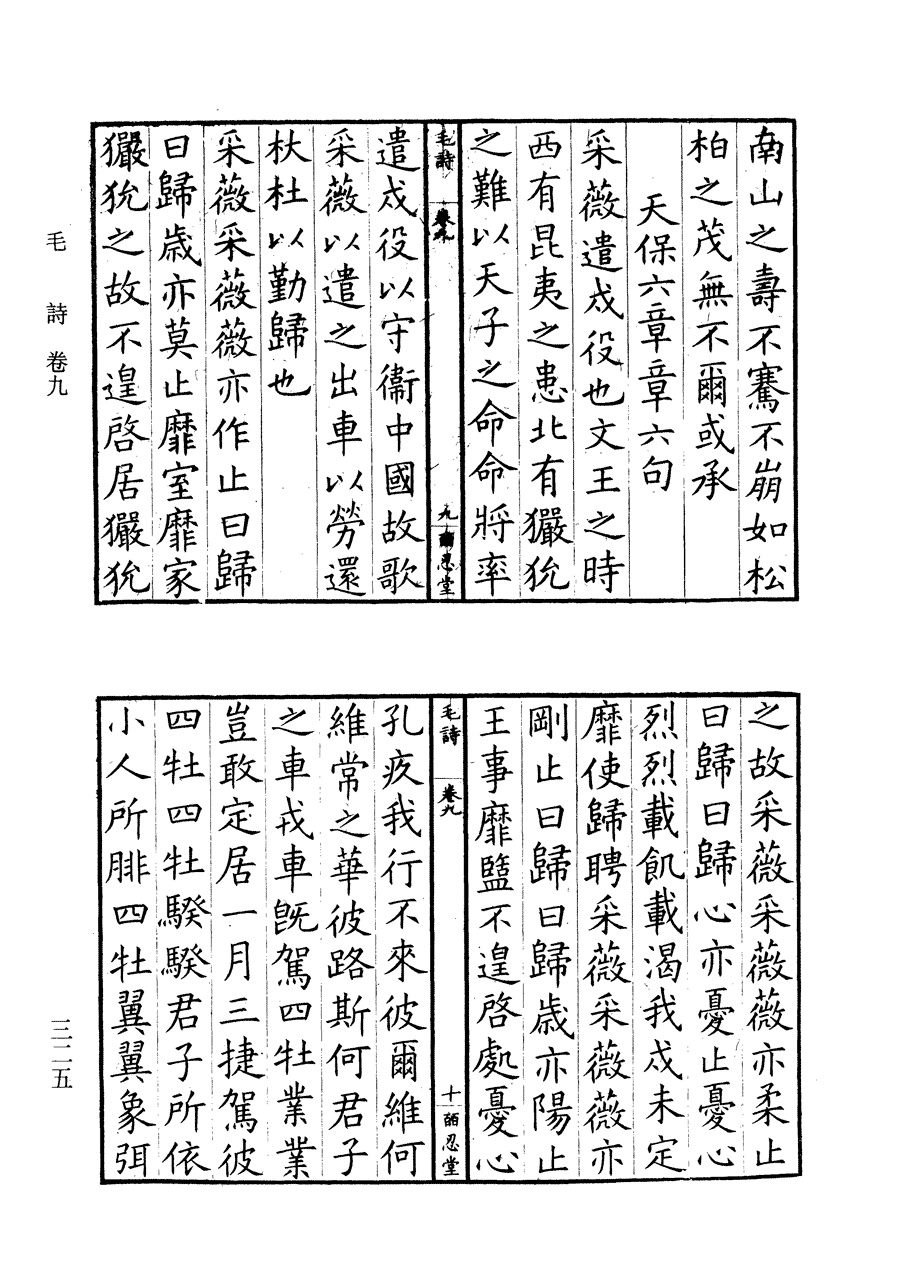 南山之壽不騫不崩如松
柏之茂無不爾或承
天保六章章六句
采薇遣戍役也文王之時
西有昆夷之患北有玁狁
之難以天子之命命將率
毛詩 卷九 九 皕忍堂
遣戍役以守衞中國故歌
采薇以遣之出車以勞還
杕杜以勤歸也
采薇采薇薇亦作止曰歸
曰歸歲亦莫止靡室靡家
玁狁之故不遑啓居玁狁
毛詩 卷九
之故采薇采薇薇亦柔止
曰歸曰歸心亦憂止憂心
烈烈載飢載渴我戍未定
靡使歸聘采薇采薇薇亦
剛止曰歸曰歸歲亦陽止
王事靡盬不遑啓處憂心
毛詩 卷九 十 皕忍堂
孔疚我行不來彼爾維何
維常之華彼路斯何君子
之車戎車旣駕四牡業業
豈敢定居一月三捷駕彼
四牡四牡騤騤君子所依
小人所腓四牡翼翼象弭
三二五